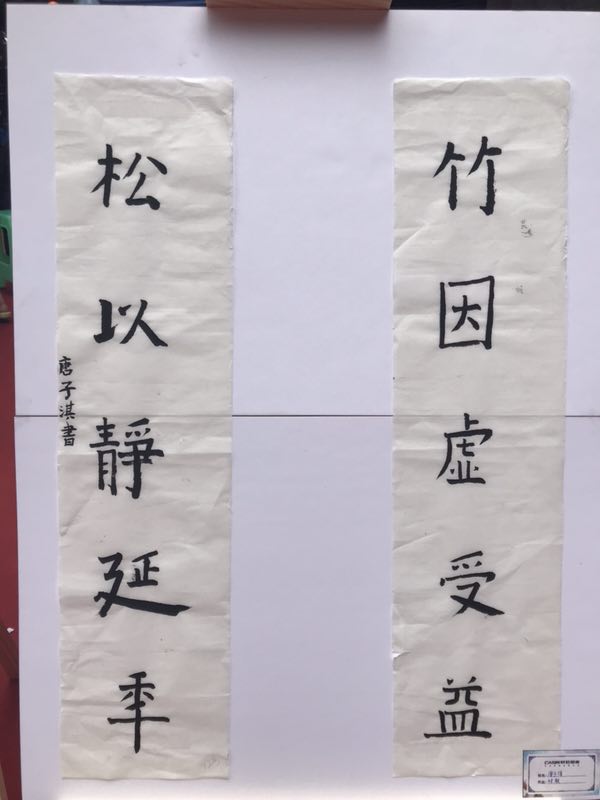 竹因虚受益
松以靜延年
唐子淇書